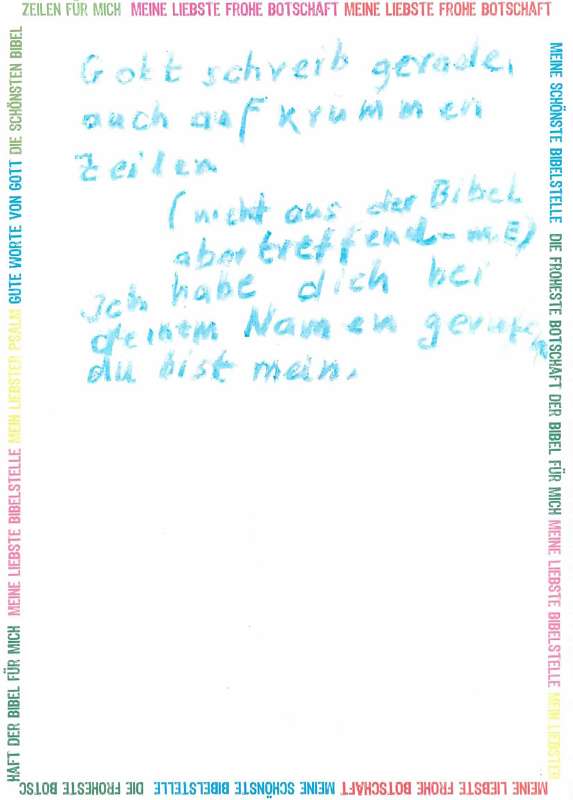 ZEILEN FÜR MICH MEINE LIEBSTE FROHE BOTSCHAFT MEINE LIEBSTE FROHE BOTSCHAFT
MEINE SCHÖNSTE BIBELSTELLE DIE FROHESTE BOTSCHAFT DER BIBEL FÜR MICH MEINE LIEBSTE BIBELSTELLE MEIN LIEBSTER
Gott schreib gerade,
auch auf krummen
Zeilen
(nicht aus der Bibel
aber treffend - m.E)
Ich habe dich bei
deinem Namen gerufen
du bist mein.
MEINE LIEBSTE FROHE BOTSCHAFT MEINE SCHÖNSTE BIBELSTELLE DIE FROHESTE BOTSC
HAFT DER BIBEL FÜR MICH MEINE LIEBSTE BIBELSTELLE MEIN LIEBSTER PSALM GUTE WORTE VON GOTT DIE SCHÖNSTEN BIBEL